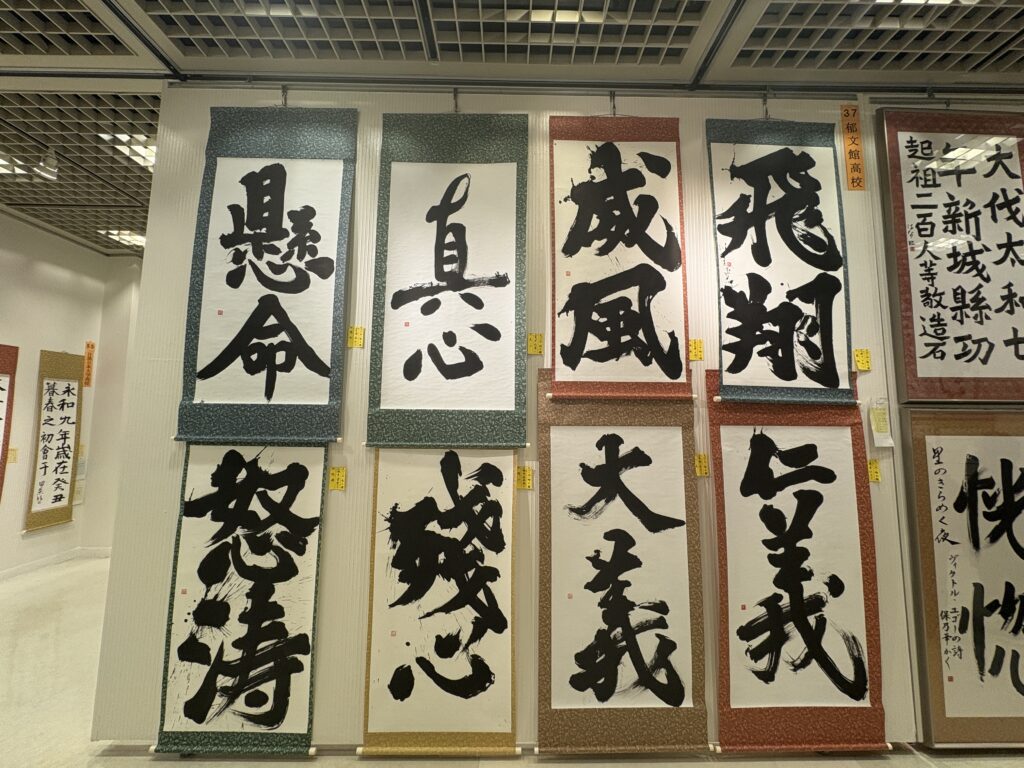 37 郁文館高校
飛翔
威風
真心
懸命
仁義
大義
残心
怒涛
大伐太和七
年新城縣功
起祖二百人等敬造石
恍惚
星のきらめく夜
ヴィクトル・ユゴーの詩
永和九年歳在癸丑
暮春之初會于